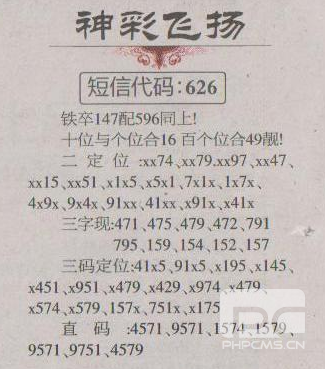 神彩飞扬
短信代码:626
铁卒147配596同上!
十位与个位合16 百个位合49靓!
二定位:xx74、xx79.xx97、xx47、
xx15、xx51、x1x5、x5x1、7x1x、1x7x、
4x9x、9x4x、91xx、41xx、x91x、x41x
三字现:471、475、479、472、791
795、159、154、152、157
三码定位:41x5、91x5、x195、x145、
x451、x951、x479、x429、x974、x479、
x574、x579、157x、751x、x175
直码:4571、9571、1574、1579、
9571、9751、4579
PHPCMS.CN